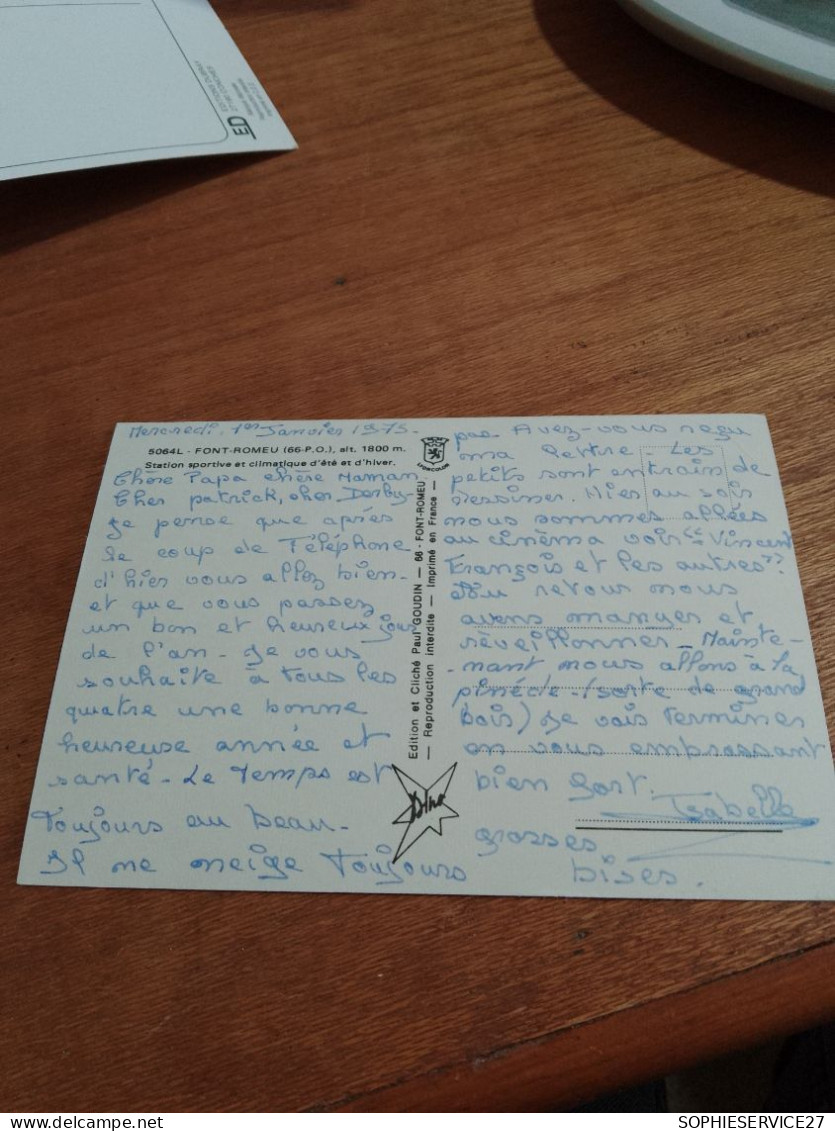 EDITIONS DUBRAY
27190 CONCHES
ED
Mercredi 1er Janvier 1975.
5064L - FONT-ROMEU (66-P.O.), alt. 1800 m.
Station sportive et climatique d'été et d'hiver.
Chère Papa chère Maman
Cher patrick, cher Derby
Je pense que après
le coup de Téléphone
d'hier vous allez bien-
et que vous passez
un bon et heureux jour
de l'an - Je vous
souhaite à tous les
quatre une bonne
heureuse année et
santé - Le temps est
Toujours au beau-
Il ne neige toujours
LYONCOLOR
Edition et Cliché Paul GOUDIN — 66 - FONT-ROMEU
— Reproduction interdite — Imprimé en France —
Dino
pas Avez-vous reçu
ma lettre - Les
petits sont entrain de
dessiner. Hier au soir
nous sommes allées
au cinéma voir "Vincent
François et les autres"
Au retour nous
avons manger et
réveillonner - Mainte-
-nant nous allons à la
pinède (sorte de grand
bois) Je vais terminer
en vous embrassant
bien fort.
Isabelle
grosses
bises.
SOPHIESERVICE27